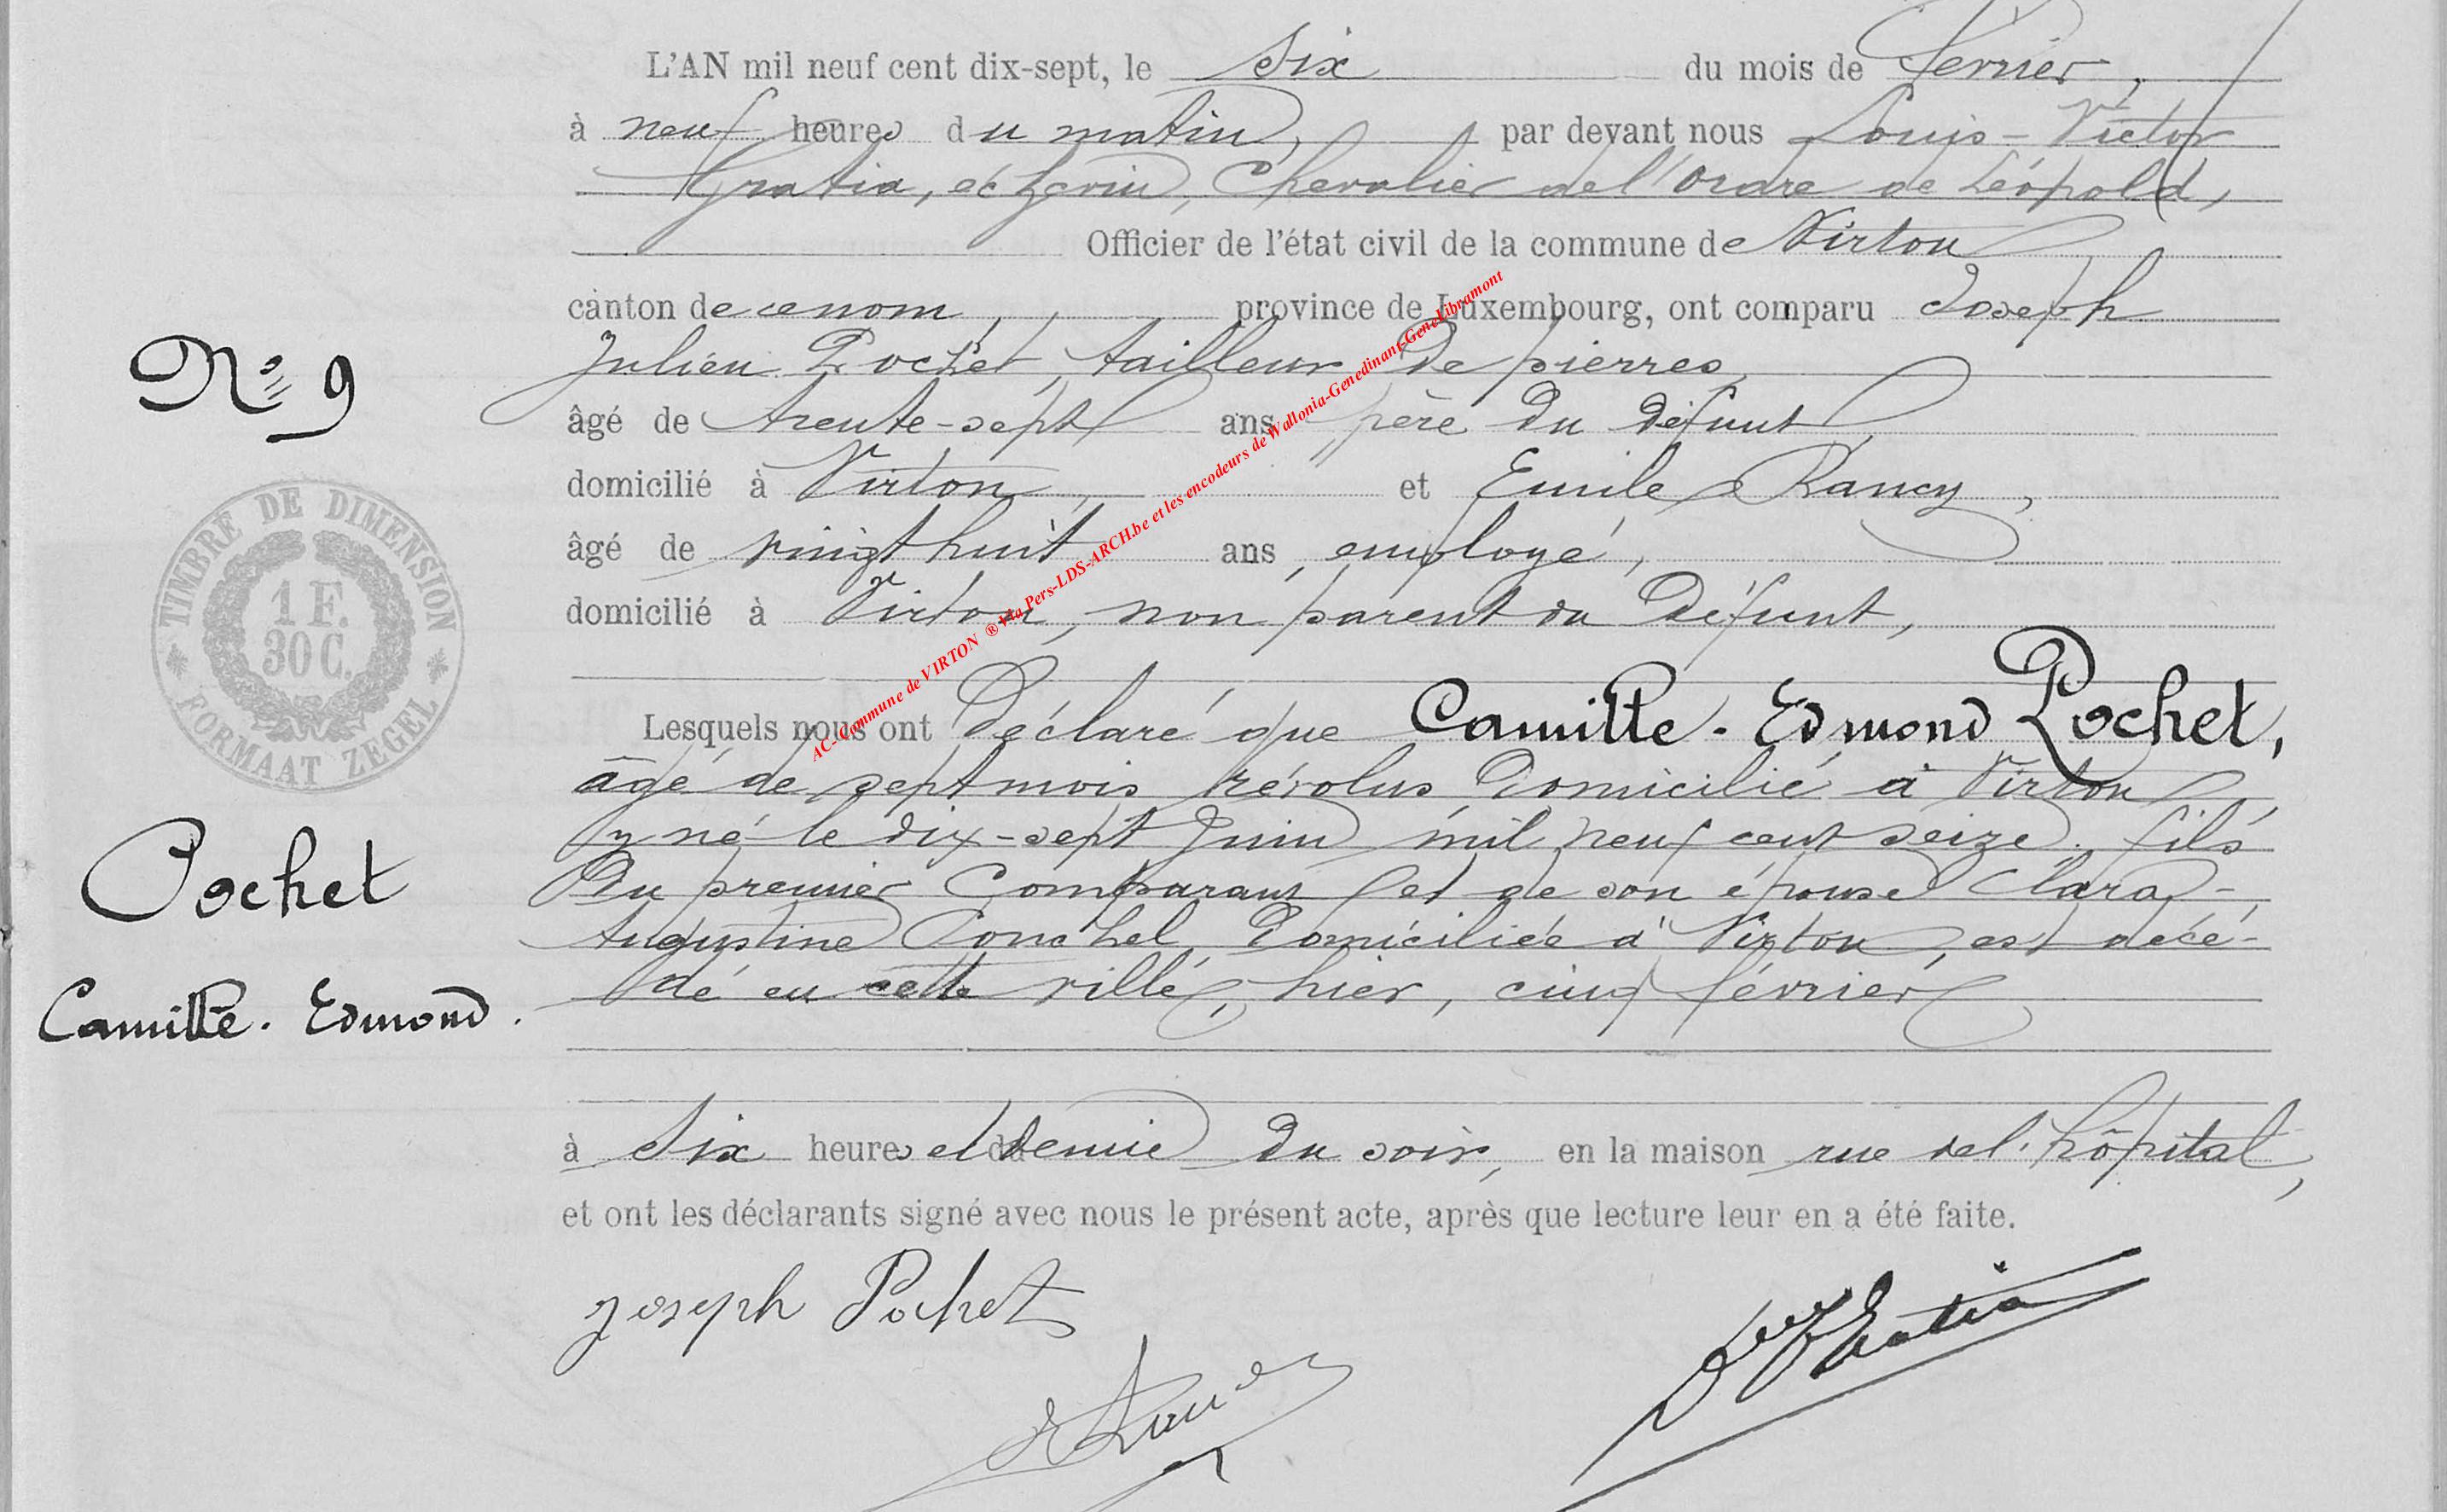 L'AN mil neuf cent dix-sept, le six du mois de Février,
à neuf heures du matin, par devant nous Louis-Victor
Gratia, échevin, Chevalier de l'Ordre de Léopold,
Officier de l'état civil de la commune de Virton
canton de ce nom, province de Luxembourg, ont comparu Joseph
Julien Pochet, tailleur de pierres,
âgé de trente-sept ans père du défunt,
domicilié à Virton, et Emile Rancy,
âgé de vingt huit ans, employé,
domicilié à Virton, non parent du défunt,
Lesquels nous ont déclaré que Camille-Edmond Pochet,
âgé de sept mois révolus, domicilié à Virton,
y né le dix-sept Juin mil neuf cent seize, fils
du premier Comparant et de son épouse Clara-
Augustine Ponchel, domiciliée à Virton, est décé-
dé en cette ville, hier, cinq février
à six heures et demie du soir, en la maison rue de l'hôpital,
et ont les déclarants signé avec nous le présent acte, après que lecture leur en a été faite.
Joseph Pochet
LVGratia
N° 9
TIMBRE DE DIMENSION
1 F.
30 C.
FORMAAT ZEGEL
Pochet
Camille-Edmond.
AC-Commune de VIRTON ® via Pers-LDS-ARCH.be et les encodeurs de Wallonia-Genedinant-GeneLibramont